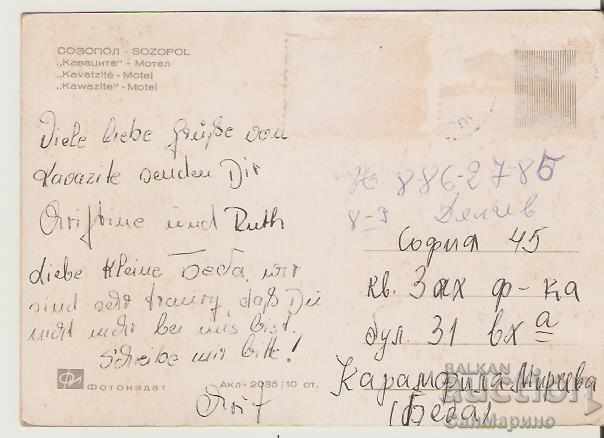 СОЗОПОЛ - SOZOPOL
„Каваците" - Мотел
„Kavatzité - Motel
„Kawazite" - Motel
Viele liebe Grüße von
Kavazite senden Dir
Christine und Ruth
Liebe kleine Beda, wir
sind sehr traurig, daß Du
nicht mehr bei uns bist.
Schreibe mir bitte!
Фотоиздат
Акл-2035/10 ст.
886-2785
8-9 Делчев
София 45
кв. Зах ф-ка
бул. 31 вх а
Карамфила Мирчева
(Беда)
BALKAN
auction
СанМарино